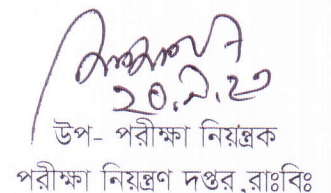 ২০.৯.২৩
উপ- পরীক্ষা নিয়ন্ত্রক
পরীক্ষা নিয়ন্ত্রণ দপ্তর, রাঃবিঃ